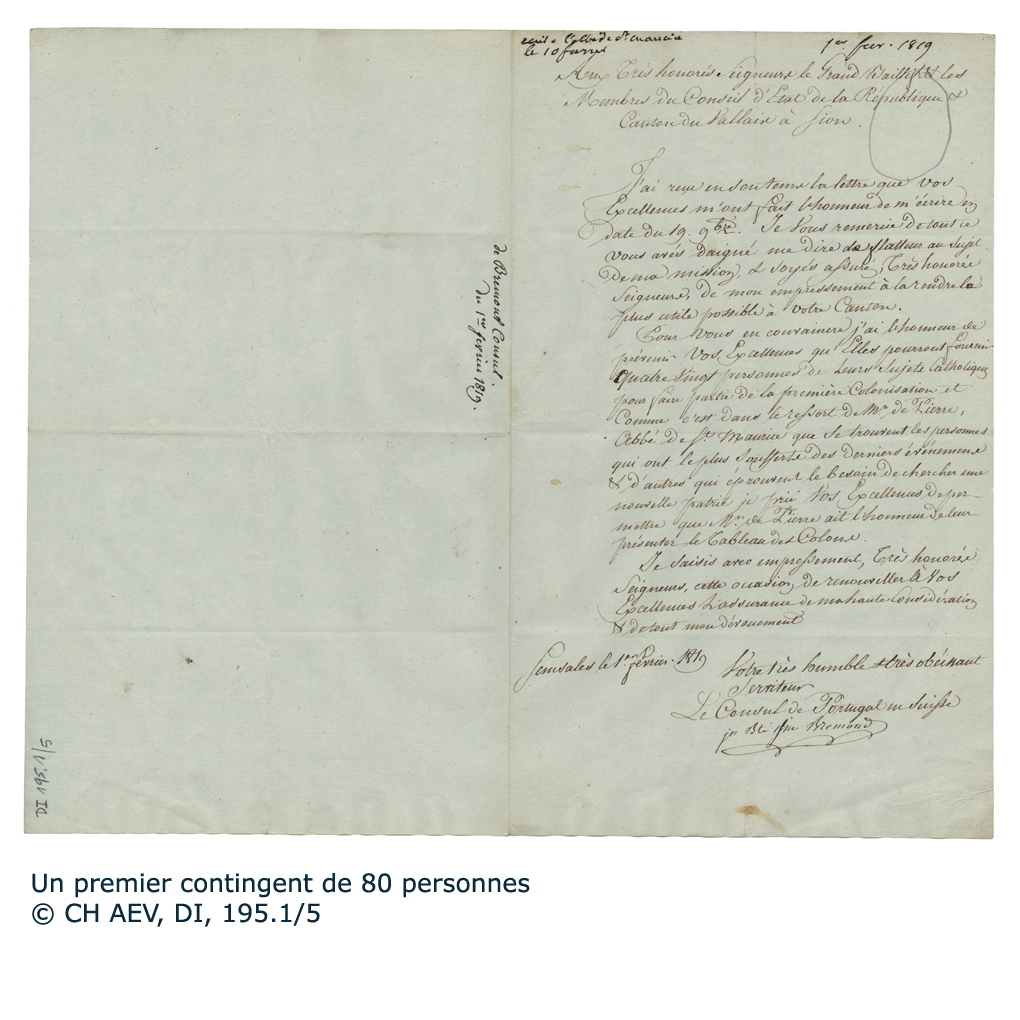 ecrit a l'abbé de St Maurice
le 10 fevrier
1er fev. 1819
Aux Très honorés Seigneurs le Grand Bailliff & les
Membres du Conseil d'Etat de la République &
Canton du Vallais à Sion.
J'ai reçu en son tems la lettre que Vos
Excellences m'ont fait l'honneur de m'écrire en
date du 19. 9bre. Je Vous remercie de tout ce
vous avés daigné me dire de flatteur au Sujet
de ma mission, & soyés assuré, Très honorés
Seigneurs, de mon empressement à la rendre la
plus utile possible à votre Canton.
Pour vous en convaincre j'ai l'honneur de
prévenir Vos Excellences qu'Elles pourront fournir
quatre vingt personnes de leurs sujets Catholiques
pour faire partie de la première Colonisation et
Comme c'est dans le ressort de Mr. de Pierre,
Abbé de St. Maurice que se trouvent les personnes
qui ont le plus soufferts des derniers événemens
& d'autres qui éprouvent le besoin de chercher une
nouvelle patrie je prie Vos Excellences de per-
mettre que Mr. de Pierre ait l'honneur de leur
présenter le Tableau des Colons.
Je saisis avec empressement, Très honorés
Seigneurs, cette occasion, de renouveller à Vos
Excellences l'assurance de ma haute Considération
& de tout mon dévouement
Semsales le 1er février. 1819
Votre très humble & très obéissant
Serviteur
Le Consul de Portugal en Suisse
Bremond
de Bremont Consul.
du 1er fevrier 1819.
DI 195.1/5
Un premier contingent de 80 personnes
© CH AEV, DI, 195.1/5